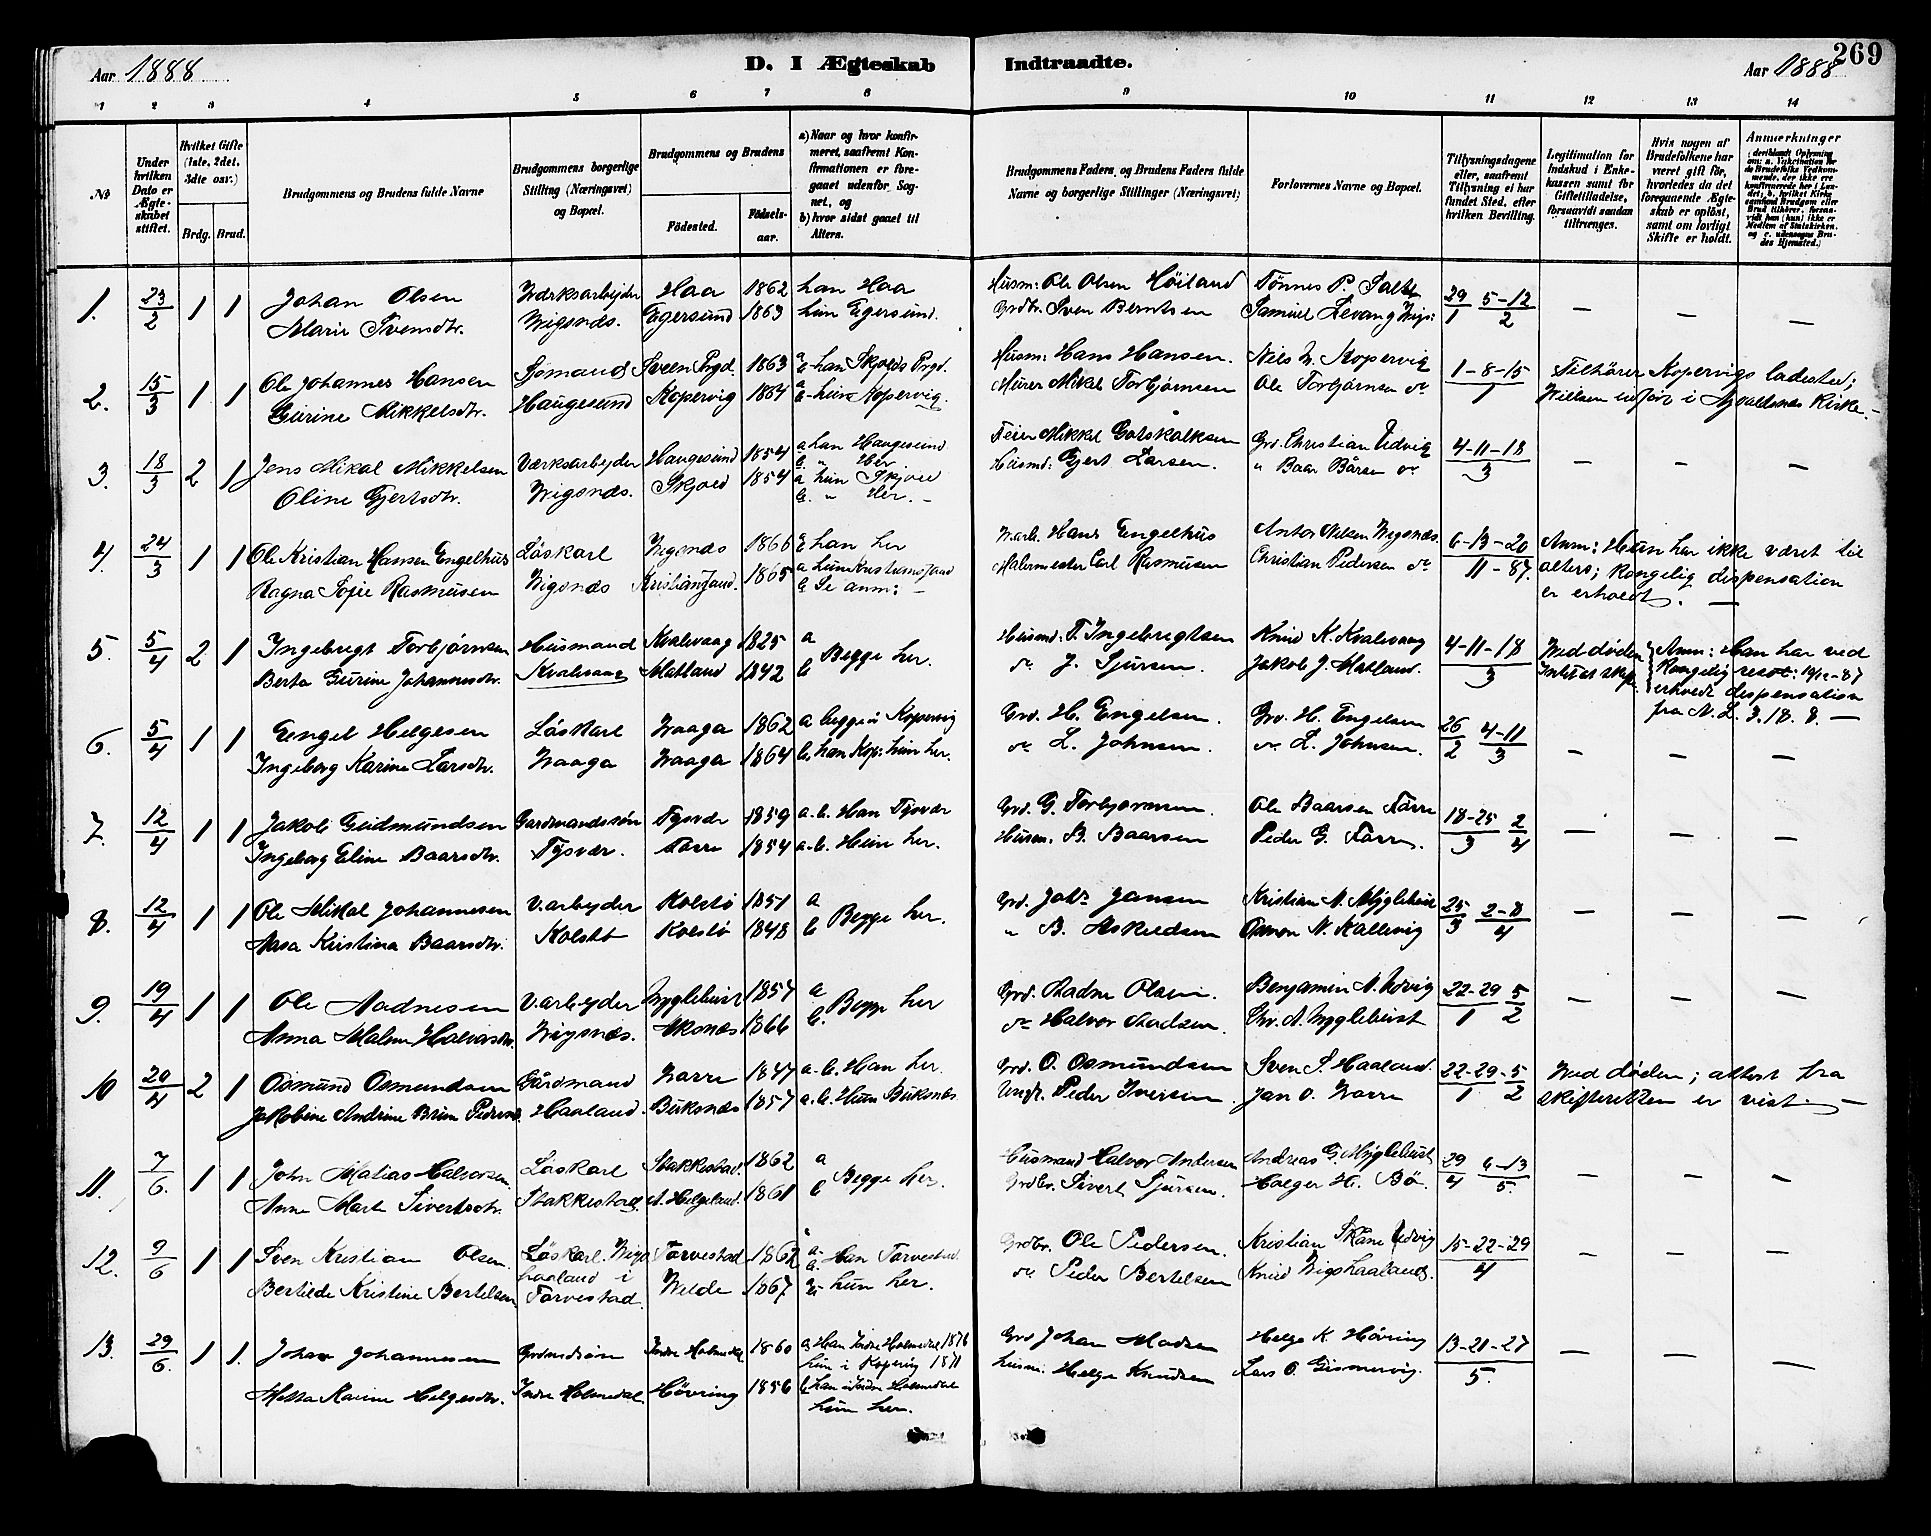 269
Aar 1888
D. I Ægteskab Indtraadte.
Aar 1888
1 2 3 4 5 6 7 8 9 10 11 12 13 14
No
Under hvilken Dato er Ægteskabet stiftet.
Hvilket Gifte (1ste, 2det, 3die osv.)
Brdg. Brud.
Brudgommens og Brudens fulde Navne
Brudgommens borgerlige Stilling (Næringsvei) og Bopæl.
Brudgommens og Brudens
Fødested.
Fødselsaar.
a) Naar og hvor konfirmeret, saafremt Konfirmationen er foregaaet udenfor Sognet, og
b) hvor sidst gaaet til Alters.
Brudgommens Faders, og Brudens Faders fulde Navne og borgerlige Stillinger (Næringsvei)
Forlovernes Navne og Bopæl.
Tillysningsdagene eller, saafremt Tillysning ei har fundet Sted, efter hvilken Bevilling.
Legitimation for Indskud i Enkekassen samt for Giftetilladelse, forsaavidt saadan tiltrænges.
Hvis nogen af Brudefolkene har været gift før, hvorledes da det foregaaende Ægteskab er opløst, samt om lovligt Skifte er holdt.
Anmærkninger
1. 23/2 1 1 Johan Olsen Værksarbejder Haa 1862 han Haa Husm: Ole Olsen Høiland Tønnes P. 29/1 5-12/2 — — —
Marie Svensdtr. Vigsnæs. Egersund 1863 hun Egersund. Grdbr. Sven Berntsen Samuel Levang Vigs:
2. 15/3 1 1 Ole Johannes Hansen Sjømand Sveen Prgd. 1863 han Skjolds Prgd. Husm: Hans Hansen. Nils N. Kopervig 1-8-15/1 Tilhører Kopervigs ladested;
Gurine Mikkelsdtr. Haugesund Kopervig 1864 hun Kopervig. Murer Mikal Torbjørnsen Ole Torbjørnsen do Vielsen udført i Avaldsnæs Kirke. —
3. 18/3 2 1 Jens Mikal Mikkelsen Værksarbejder Haugesund 1854 a han Haugesund b. " Her Feier Mikkel Gotskalksen Grd. Christian Udvig 4-11-18/3 — — —
Oline Gjertsdtr. Vigsnæs. Skjold 1854 a hun Skjold b " Her. — Husmd: Gjert Larsen. " Baar Bårsen do
4. 24/3 1 1 Ole Kristian Hansen Engelhus Løskarl Vigsnæs 1866 han her V.arb. Hans Engelhus Anton Nilsen Vigsnæs. 6-13-20/11-87. Anm: Hun har ikke været til
Ragna Sofie Rasmusen Vigsnæs Kristianssand. 1865 a hun Kristianssand b Se anm: — Malermester Carl Rasmusen Christian Pedersen do alters; Kongelig dispensation
er erholdt. —
5. 5/4 2 1 Ingebregt Torbjørnsen Husmand Kvalevaag 1825 a b Begge her. Husmd: T. Ingebregtsen Knud K. Kvalevaag 4-11-18/3 Ved døden Anm: Han har ved
Berta Gurine Johannesdtr. Kvalevaag Matland 1842 do J. Sjursen. Jakob J. Matland. Intet at skifte Kongelig resol: 19/12-87
erholdt dispensation
fra N. L. 3. 18. 8. —
6. 5/4 1 1 Engel Helgesen Løskarl Vaaga 1862 a begge i Kopervig Grd. H. Engelsen. Grd. H. Engelsen 26/2 4-11/3 — — —
Ingeborg Karine Larsdtr. Vaaga Vaaga 1864 b. han Kop: hun her. do L. Johnsen. do L. Johnsen.
7. 12/4 1 1 Jakob Gudmundsen Gardmandssøn Tysvær 1859 a-b. Han Tysvær Grd. G. Torbjørnsen Ole Baarsen Førre 18-25/3 2/4 — — —
Ingeborg Eline Baarsdtr. Tysvær. Førre 1854 a-b. Hun her. Husm. B. Baarsen Peder G. Førre.
8. 12/4 1 1 Ole Mikal Johannesen V.arbejder Kolstø 1851 a b Begge her. Grd. Johs Jansen Kristian N. Myglebust 25/3 2-8/4 — — —
Aasa Kristina Baarsdtr. Kolstø Kolstø 1848 " B. Askildsen N. Kallevig
9. 19/4 1 1 Ole Aadnesen V.arbejder Myglebust 1857 a b. Begge her Grd. Aadne Olsen. Benjamin N. Udvig 22-29/1 5/2 — — —
Anna Malene Halvorsdtr. Vigsnæs. Aksnæs 1866 do Halvor Aadsen. Chr. A. Myglebust
10 20/4 2 1 Osmund Osmundsen Gårdmand Varre 1847 a.b. Han her. Grd. O. Osmundsen Sven S. Haaland. 22-29/1 5/2 Ved døden; attest fra
Jakobine Andrine Brun Pedersd. Haaland. Buksnæs 1857 a.b. Hun Buksnæs Peder Iversen. Jan O. Varre skifteretten er vist. —
11. 7/6. 1 1 John Matias Halvorsen. Løskarl Stakkestad. 1862 a b Begge her. Husmand Halvor Andersen Andreas G. Myglebust 29/4 6-13/5. — — —
Anne Marte Sivertsdtr. Stakkestad. N. Helgeland. 1861 Grdbr. Sivert Sjursen. Holger H. Bø.
12. 9/6 1 1 Sven Kristian Olsen. Løskarl. Vigs Torvestad 1862 a. b. Han Torvestad. Grdbr. Ole Pedersen. Kristian Skåne Udvig 15-22-29/4 — — —
Bertilde Kristine Bertelsen haaland i Torvestad. Velde 1867 hun her. do Peder Bertelsen Knud Vigshaaland.
13. 29/6. 1 1. Johan Johannesen Grdmdssøn Indre Holmedal 1860 a Han Indre Holmedal 1876 hun i Kopervig 1871 Grd Johan Madsen Helge K. Høvring 13-21-27/5. — — —
Metta Karine Helgesdtr. Indre Holmedal. Høvring 1856 b han i Indre Holmedal hun her. husm: Helge Knudsen Lars O. Gismervig.